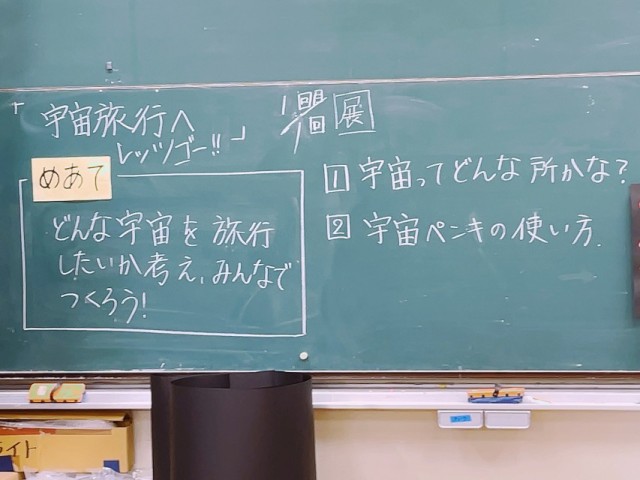 「宇宙旅行へ
レッツゴー!!」
展
めあて
どんな宇宙を旅行
したいか考え、みんなで
つくろう!
1 宇宙ってどんな所かな?
2 宇宙ペンキの使い方.
イト